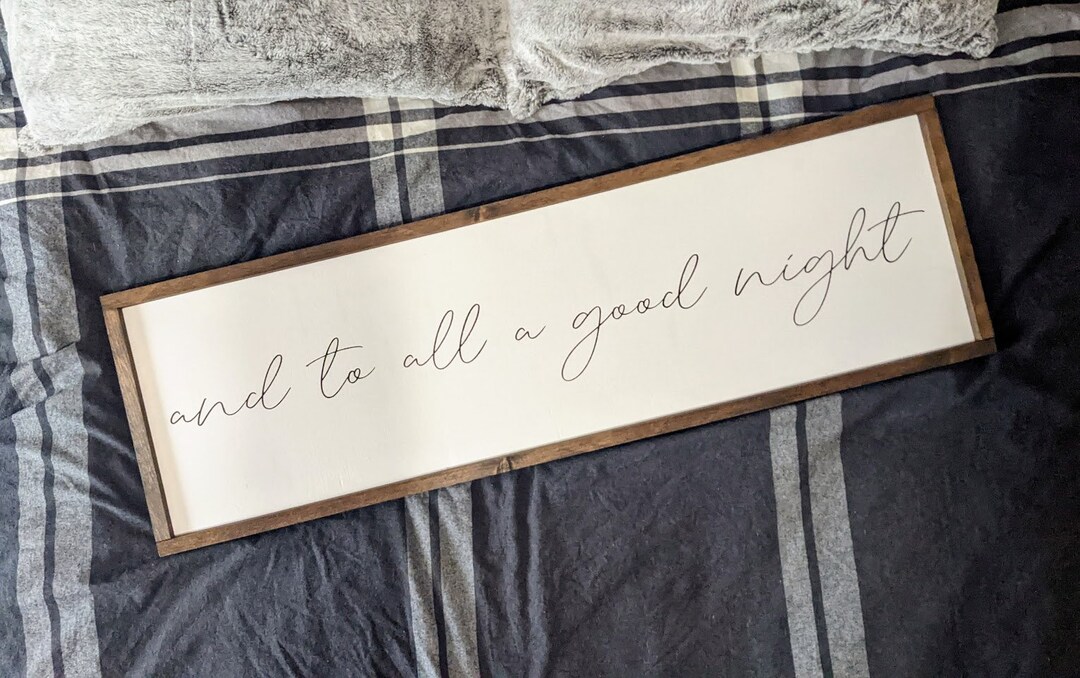 and to all a good night